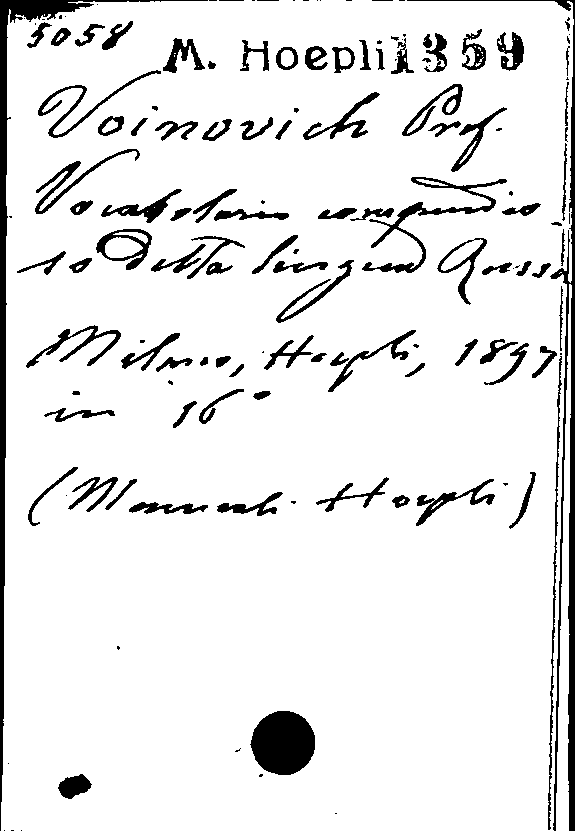 5058
M. Hoepli 1359
Voinovich Prof.
Vocabolario compendio-
so della lingua Russa
Milano, Hoepli, 1897
in 16°
(Manuali Hoepli)